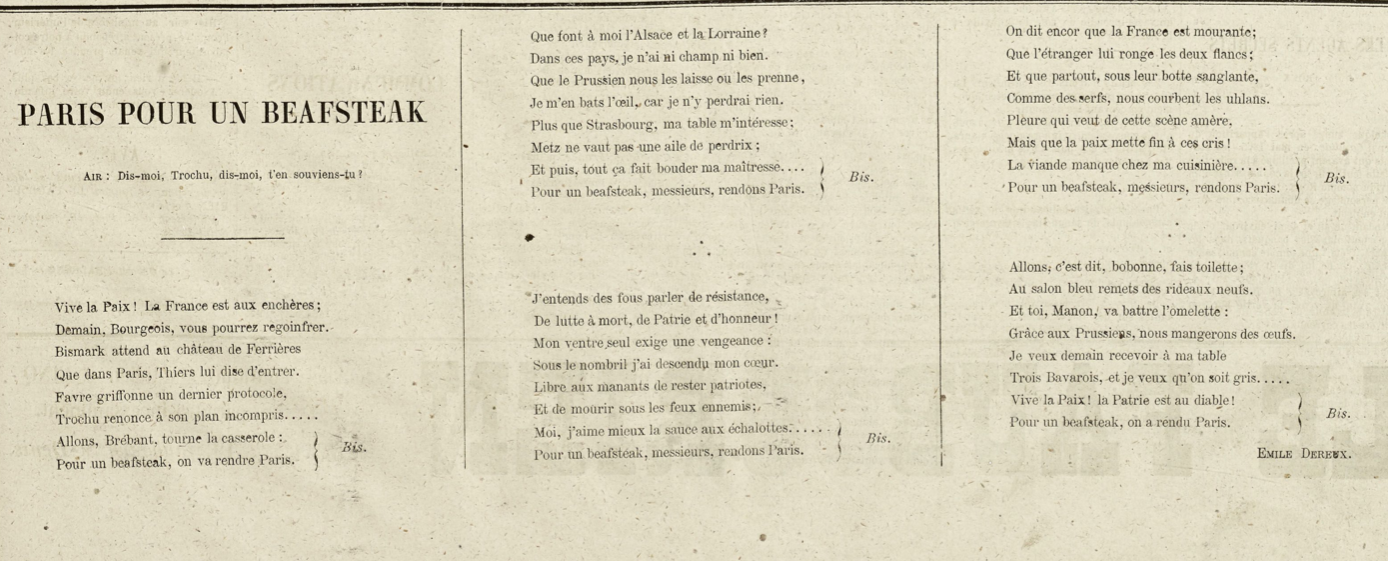 PARIS POUR UN BEAFSTEAK
AIR : Dis-moi, Trochu, dis-moi, t'en souviens-tu ?
Vive la Paix ! La France est aux enchères ;
Demain, Bourgeois, vous pourrez regoinfrer.
Bismark attend au château de Ferrières
Que dans Paris, Thiers lui dise d'entrer.
Favre griffonne un dernier protocole,
Trochu renonce à son plan incompris.....
Allons, Brébant, tourne la casserole :
Pour un beafsteak, on va rendre Paris.
Bis.
Que font à moi l'Alsace et la Lorraine ?
Dans ces pays, je n'ai ni champ ni bien.
Que le Prussien nous les laisse ou les prenne,
Je m'en bats l'œil, car je n'y perdrai rien.
Plus que Strasbourg, ma table m'intéresse ;
Metz ne vaut pas une aile de perdrix ;
Et puis, tout ça fait bouder ma maîtresse....
Pour un beafsteak, messieurs, rendons Paris.
Bis.
J'entends des fous parler de résistance,
De lutte à mort, de Patrie et d'honneur !
Mon ventre seul exige une vengeance :
Sous le nombril j'ai descendu mon cœur.
Libre aux manants de rester patriotes,
Et de mourir sous les feux ennemis ;
Moi, j'aime mieux la sauce aux échalottes......
Pour un beafsteak, messieurs, rendons Paris.
Bis.
On dit encor que la France est mourante ;
Que l'étranger lui ronge les deux flancs ;
Et que partout, sous leur botte sanglante,
Comme des serfs, nous courbent les uhlans.
Pleure qui veut de cette scène amère,
Mais que la paix mette fin à ces cris !
La viande manque chez ma cuisinière.....
Pour un beafsteak, messieurs, rendons Paris.
Bis.
Allons, c'est dit, bobonne, fais toilette ;
Au salon bleu remets des rideaux neufs.
Et toi, Manon, va battre l'omelette :
Grâce aux Prussiens, nous mangerons des œufs.
Je veux demain recevoir à ma table
Trois Bavarois, et je veux qu'on soit gris.....
Vive la Paix ! la Patrie est au diable !
Pour un beafsteak, on a rendu Paris.
Bis.
EMILE DEREUX.